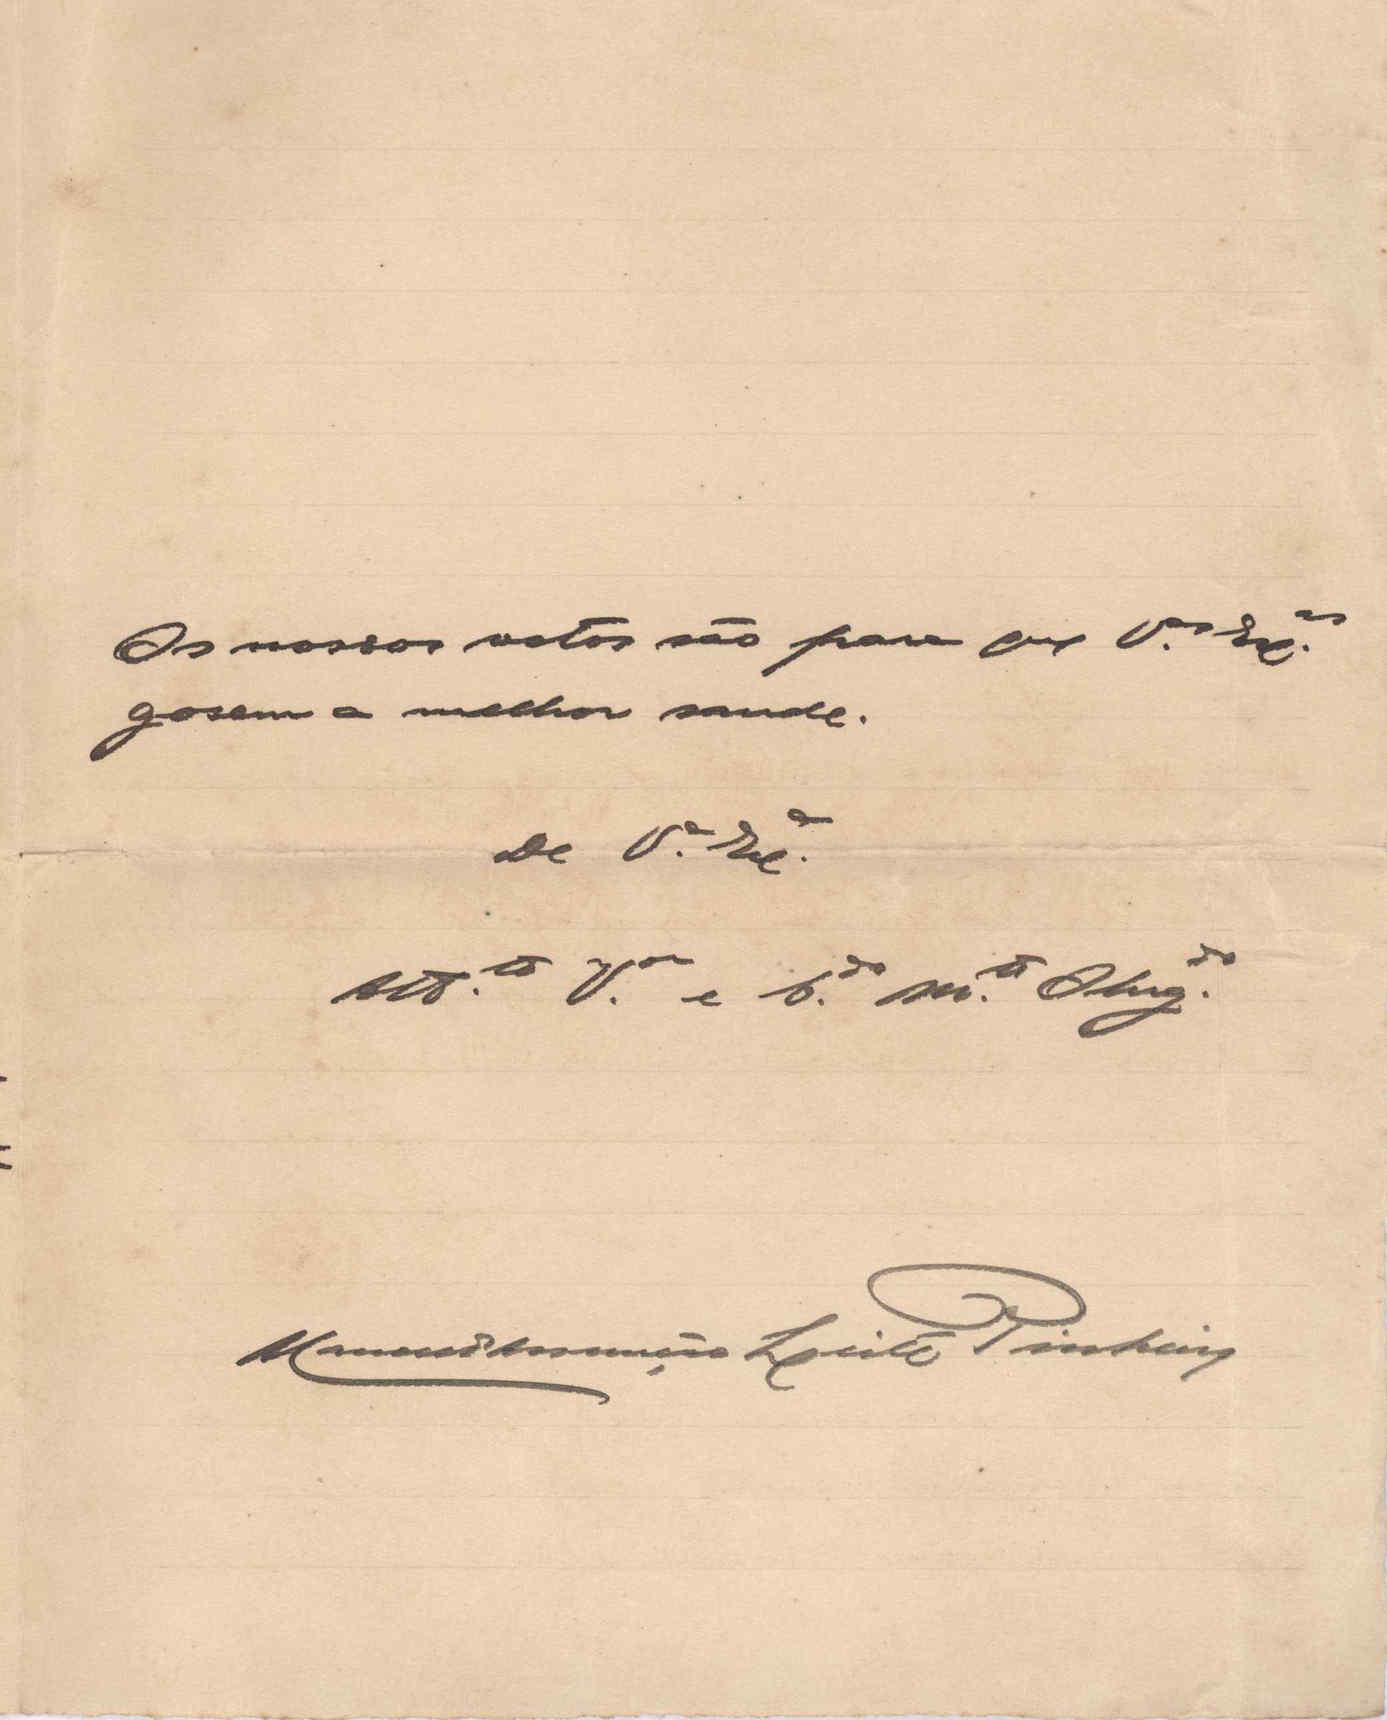 Os nossos votos são para que V.as Ex.as
gosem a melhor saude.
De V.a Ex.a
Att.to V.or e C.do M.to Obrig.do
Manuel Assumpção Leite Pinheiro